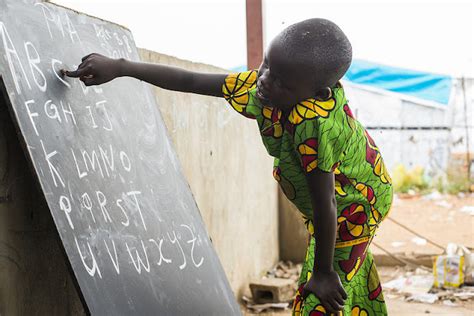 Abc
FGH IJ
KLMNO
PqrST
UVWXYZ